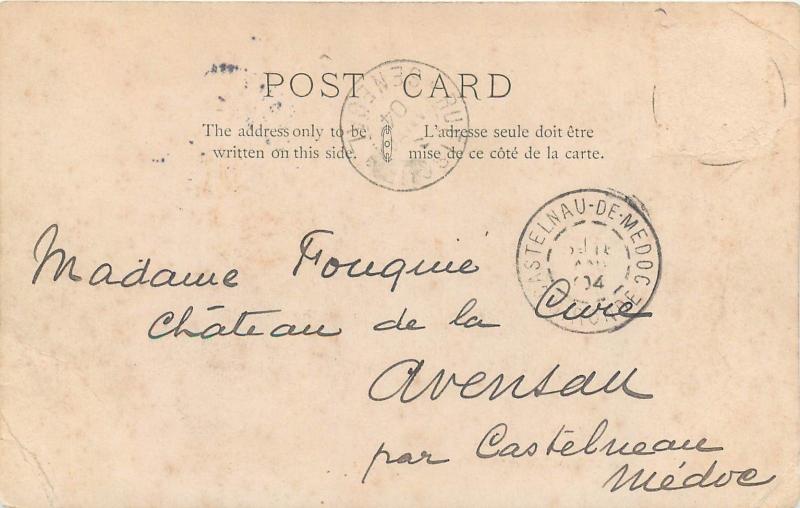 POST CARD
The address only to be
written on this side.
L'adresse seule doit être
mise de ce côté de la carte.
CASTELNAU-DE-MEDOC
04
GIRONDE
Madame Fouquié
Château de la Cure
Avensau
par Castelneau
Médoc